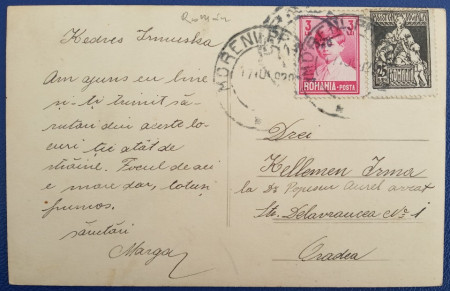 Român
Kedves Irmuska
Am ajuns cu bine
și-ți trimit să-
rutări din aceste lo-
curi ție atât de
străine. Focul de aci
e mare dar, totuși
frumos.
sărutări
Marga
MORENI
MORENI
3 3
ROMÂNIA-POSTA
25
Drei
Kellemen Irma
la Dr Popescu Aurel avocat
Str. Delavrancea No 1
Oradea